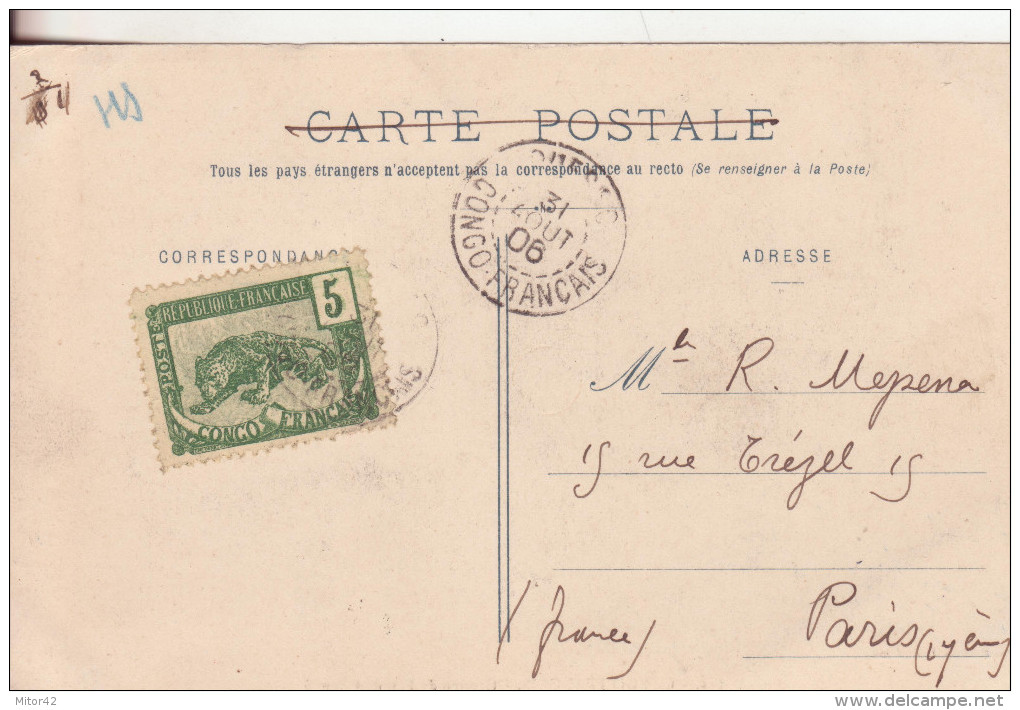 CARTE POSTALE
Tous les pays étrangers n'acceptent pas la correspondance au recto (Se renseigner à la Poste)
31
AOUT
06
CONGO-FRANCAIS
CORRESPONDANC
ADRESSE
RÉPUBLIQUE-FRANÇAISE
5
POSTES
CONGO FRANÇAIS
M R. Mepena
15 rue Trézel 15
(france)
Paris (17ème)
Mitor42
delcampe.net